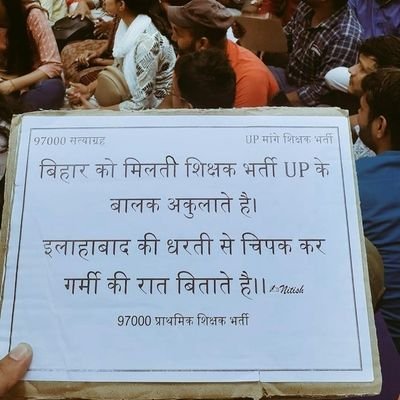 97000 सत्याग्रह UP मांगे शिक्षक भर्ती
बिहार को मिलती शिक्षक भर्ती UP के
बालक अकुलाते है।
इलाहाबाद की धरती से चिपक कर
गर्मी की रात बिताते है।। Nitish
97000 प्राथमिक शिक्षक भर्ती